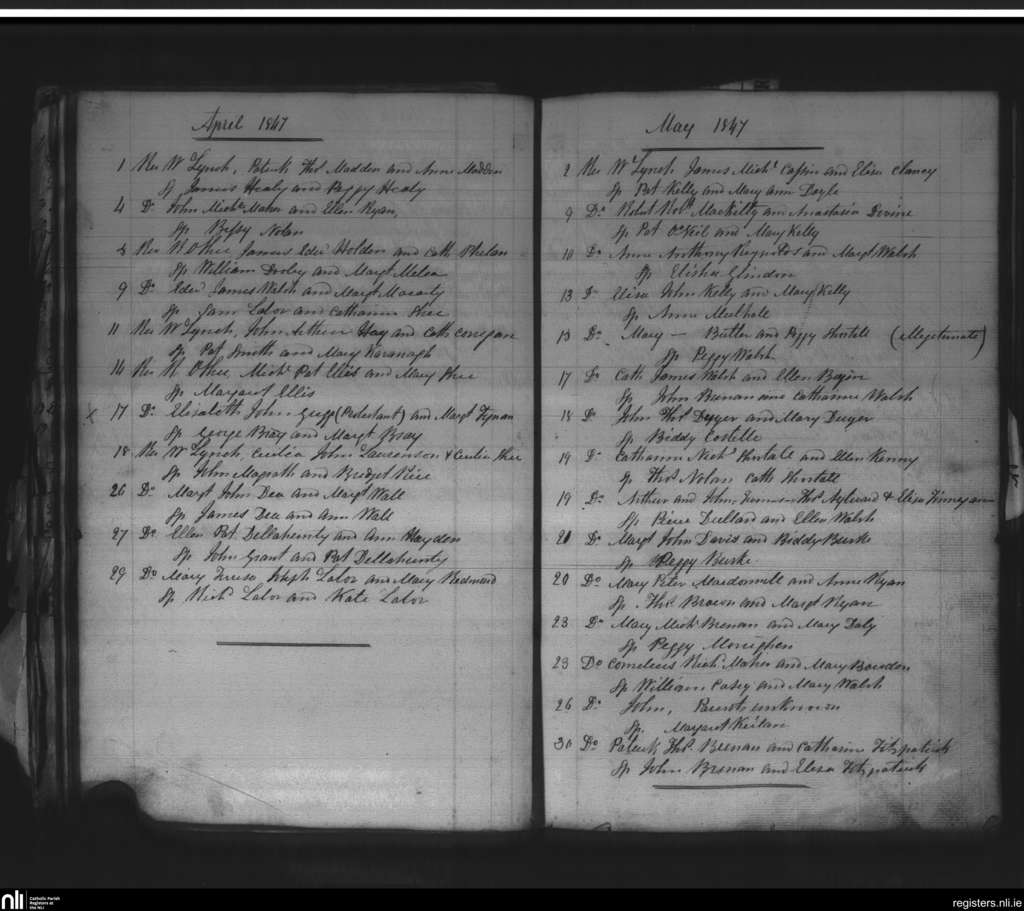 April 1847
1 Rev W Lynch, Patrick Thos Madden and Anne Madden
Sp James Healy and Peggy Healy
4 Do John Michl Maher and Ellen Ryan,
Sp Betsy Nolan
Rev N OKee James Edwd Holden and Cath Phelan
Sp William Dooley and Margt
9 Do James Walsh and Margt
Sp Lalor and Catharine Shee
11 Rev W Lynch, John Hay and Cath
Sp Pat Smith and Mary Kavanagh
14 Rev N Michl Pat Ellis and Mary Shee
Sp Margaret Ellis
x 17 Do Elizabeth John (Protestant) and Margt Tynan
Sp George Bray and Margt Bray
18 Rev W Lynch, Cecilia John & Cecilia Shee
Sp John Magrath and Bridget
26 Do Margt John Dea and Margt Wall
Sp James Dea and Ann Wall
27 Do Ellen Pat Dellahunty and Ann Hayden
Sp John Grant and Pat Dellahunty
29 Do Mary Teresa Joseph Lalor and Mary Redmond
Sp Richd Lalor and Kate Lalor
May 1847
2 Rev W Lynch James Michl and Eliza Clancy
Sp Pat Kelly and Mary Ann Doyle
9 Do Robert Robt and Anastasia Devine
Sp Pat O'Neil and Mary Kelly
10 Do Anne Anthony Reynolds and Margt Walsh
Sp Elisha Glindon
13 Do Eliza John Kelly and Mary Kelly
Sp Anne Mulhall
13 Do Mary — Butler and Peggy Shortall (illegitimate)
Sp Peggy Walsh
17 Do Cath James Walsh and Ellen
Sp John Brenan and Catharine Walsh
18 Do John Thos Dwyer and Mary Dwyer
Sp Biddy Costello
19 Do Catharine Nichs Shortall and Ellen Kenny
Sp Thos Nolan Cath Shortall
19 Do Arthur and John, Thos Aylward & Eliza Finnegan
Sp Pierce Dullard and Ellen Walsh
20 Do Margt John Davis and Biddy Burke
Sp Peggy Burke
20 Do Mary Peter and Anne Ryan
Sp Thos Brown and Margt Ryan
23 Do Mary Michl Brenan and Mary Daly
Sp Peggy
23 Do Cornelius Richd Maher and Mary Bowden
Sp William Casey and Mary Walsh
26 Do John, Parents unknown
Sp Margaret
30 Do Patrick Thos Brenan and Catharine Fitzpatrick
Sp John Brenan and Eliza Fitzpatrick
nli
Catholic Parish
Registers at
the NLI
registers.nli.ie